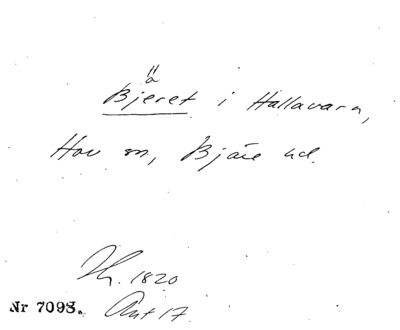 ä
Bjeret i Hallavara,
Hov sn, Bjäre hd.
1820
Nr 7093. Ant 17